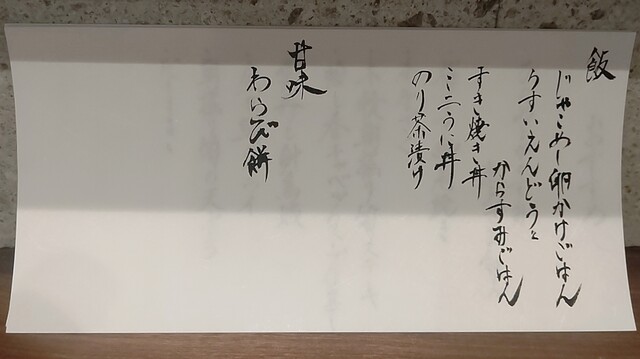 飯
じゃこめし卵かけごはん
うすいえんどうと
からすみごはん
すき焼き丼
ミニうに丼
のり茶漬け
甘味
わらび餅